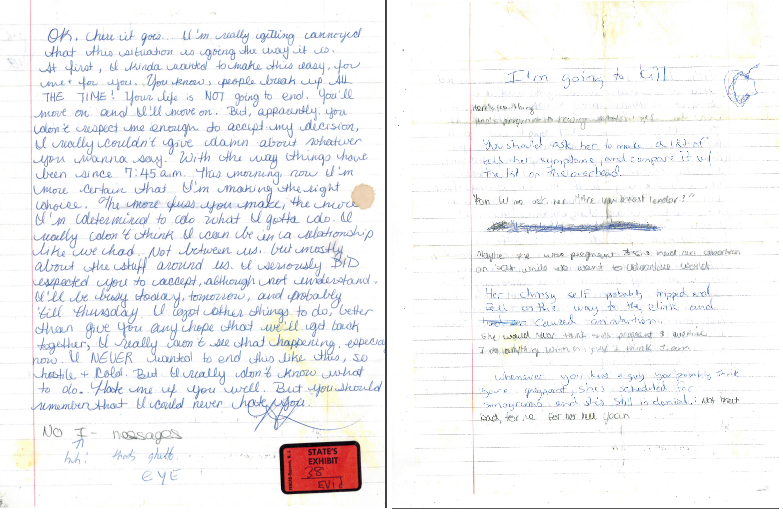 OK. Here it goes... I'm really getting annoyed
that this situation is going the way it is.
At first, I kinda wanted to make this easy, for
me + for you. You know, people break up All
THE TIME! Your life is NOT going to end. You'll
move on and I'll move on. But, apparently, you
don't respect me enough to accept my decision,
I really couldn't give a damn about whatever
you wanna say. With the way things have
been since 7:45 a.m. This morning now I'm
more certain that I'm making the right
choice. The more fuss you make, the more
I'm determined to do what I gotta do. I
really don't think I can be in a relationship
like we had. Not between us. but mostly
about the stuff around us. I seriously DID
expected you to accept, although not understand.
I'll be busy today, tomorrow, and probably
'till Thursday. I got other things to do, better
than give you any hope that we'll get back
together, I really don't see that happening, especia
now. I NEVER wanted to end this like this, so
hostile + cold. But I really don't know what
to do. Hate me if you will. But you should
remember that I could never hate you.
NO I- nassagos
huh?
EYE
STATE'S
EXHIBIT
38
EVID
I'm going to kill
Here's the thing:
You should ask her to make a list of
all her symptoms, and compare it w/
the list on the overhead.
her "Are your breast tender?"
Maybe she was pregnant + had an abortion
or while we went to Adventure World
Her clumsy self probably tripped and
fell on the way to the clinic and
caused an abortion.
she would think she's pregnant
I do anything with I think I am
Whenever you kiss a guy you probably think
you're pregnant, she's scheduled for
sonograms and she's still in denial. Not that
bad, for me for her hell yeah